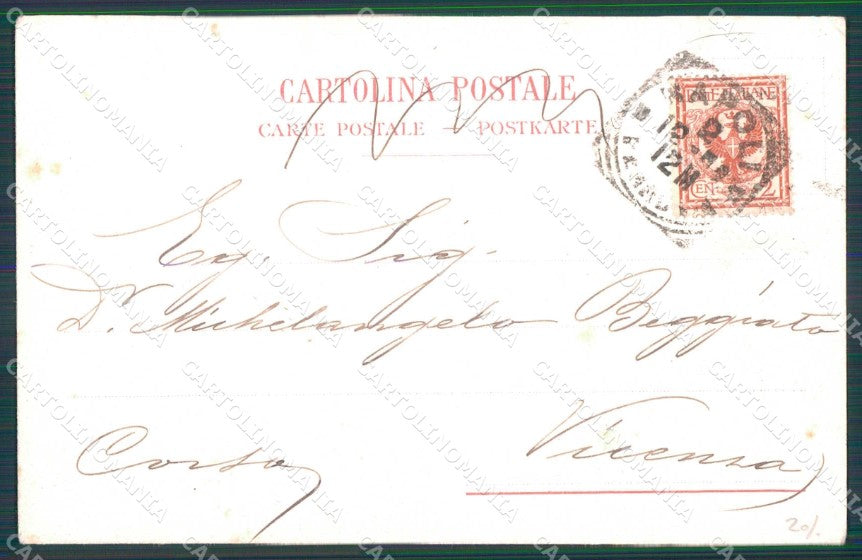 CARTOLINA POSTALE
CARTE POSTALE — POSTKARTE
NAPOLI
12M
Eg. Sig.
Dr. Michelangelo Beggiato
Corso
Vicenza
20/.
CARTOLINOMANIA